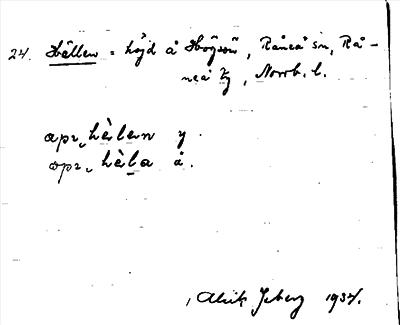 24. Hällen = höjd å Högsön, Råneå sn, Rå-
neå tg, Norrb. l.
opr. hèlen y.
opr. hèla å.
Alrik Isberg 1932.